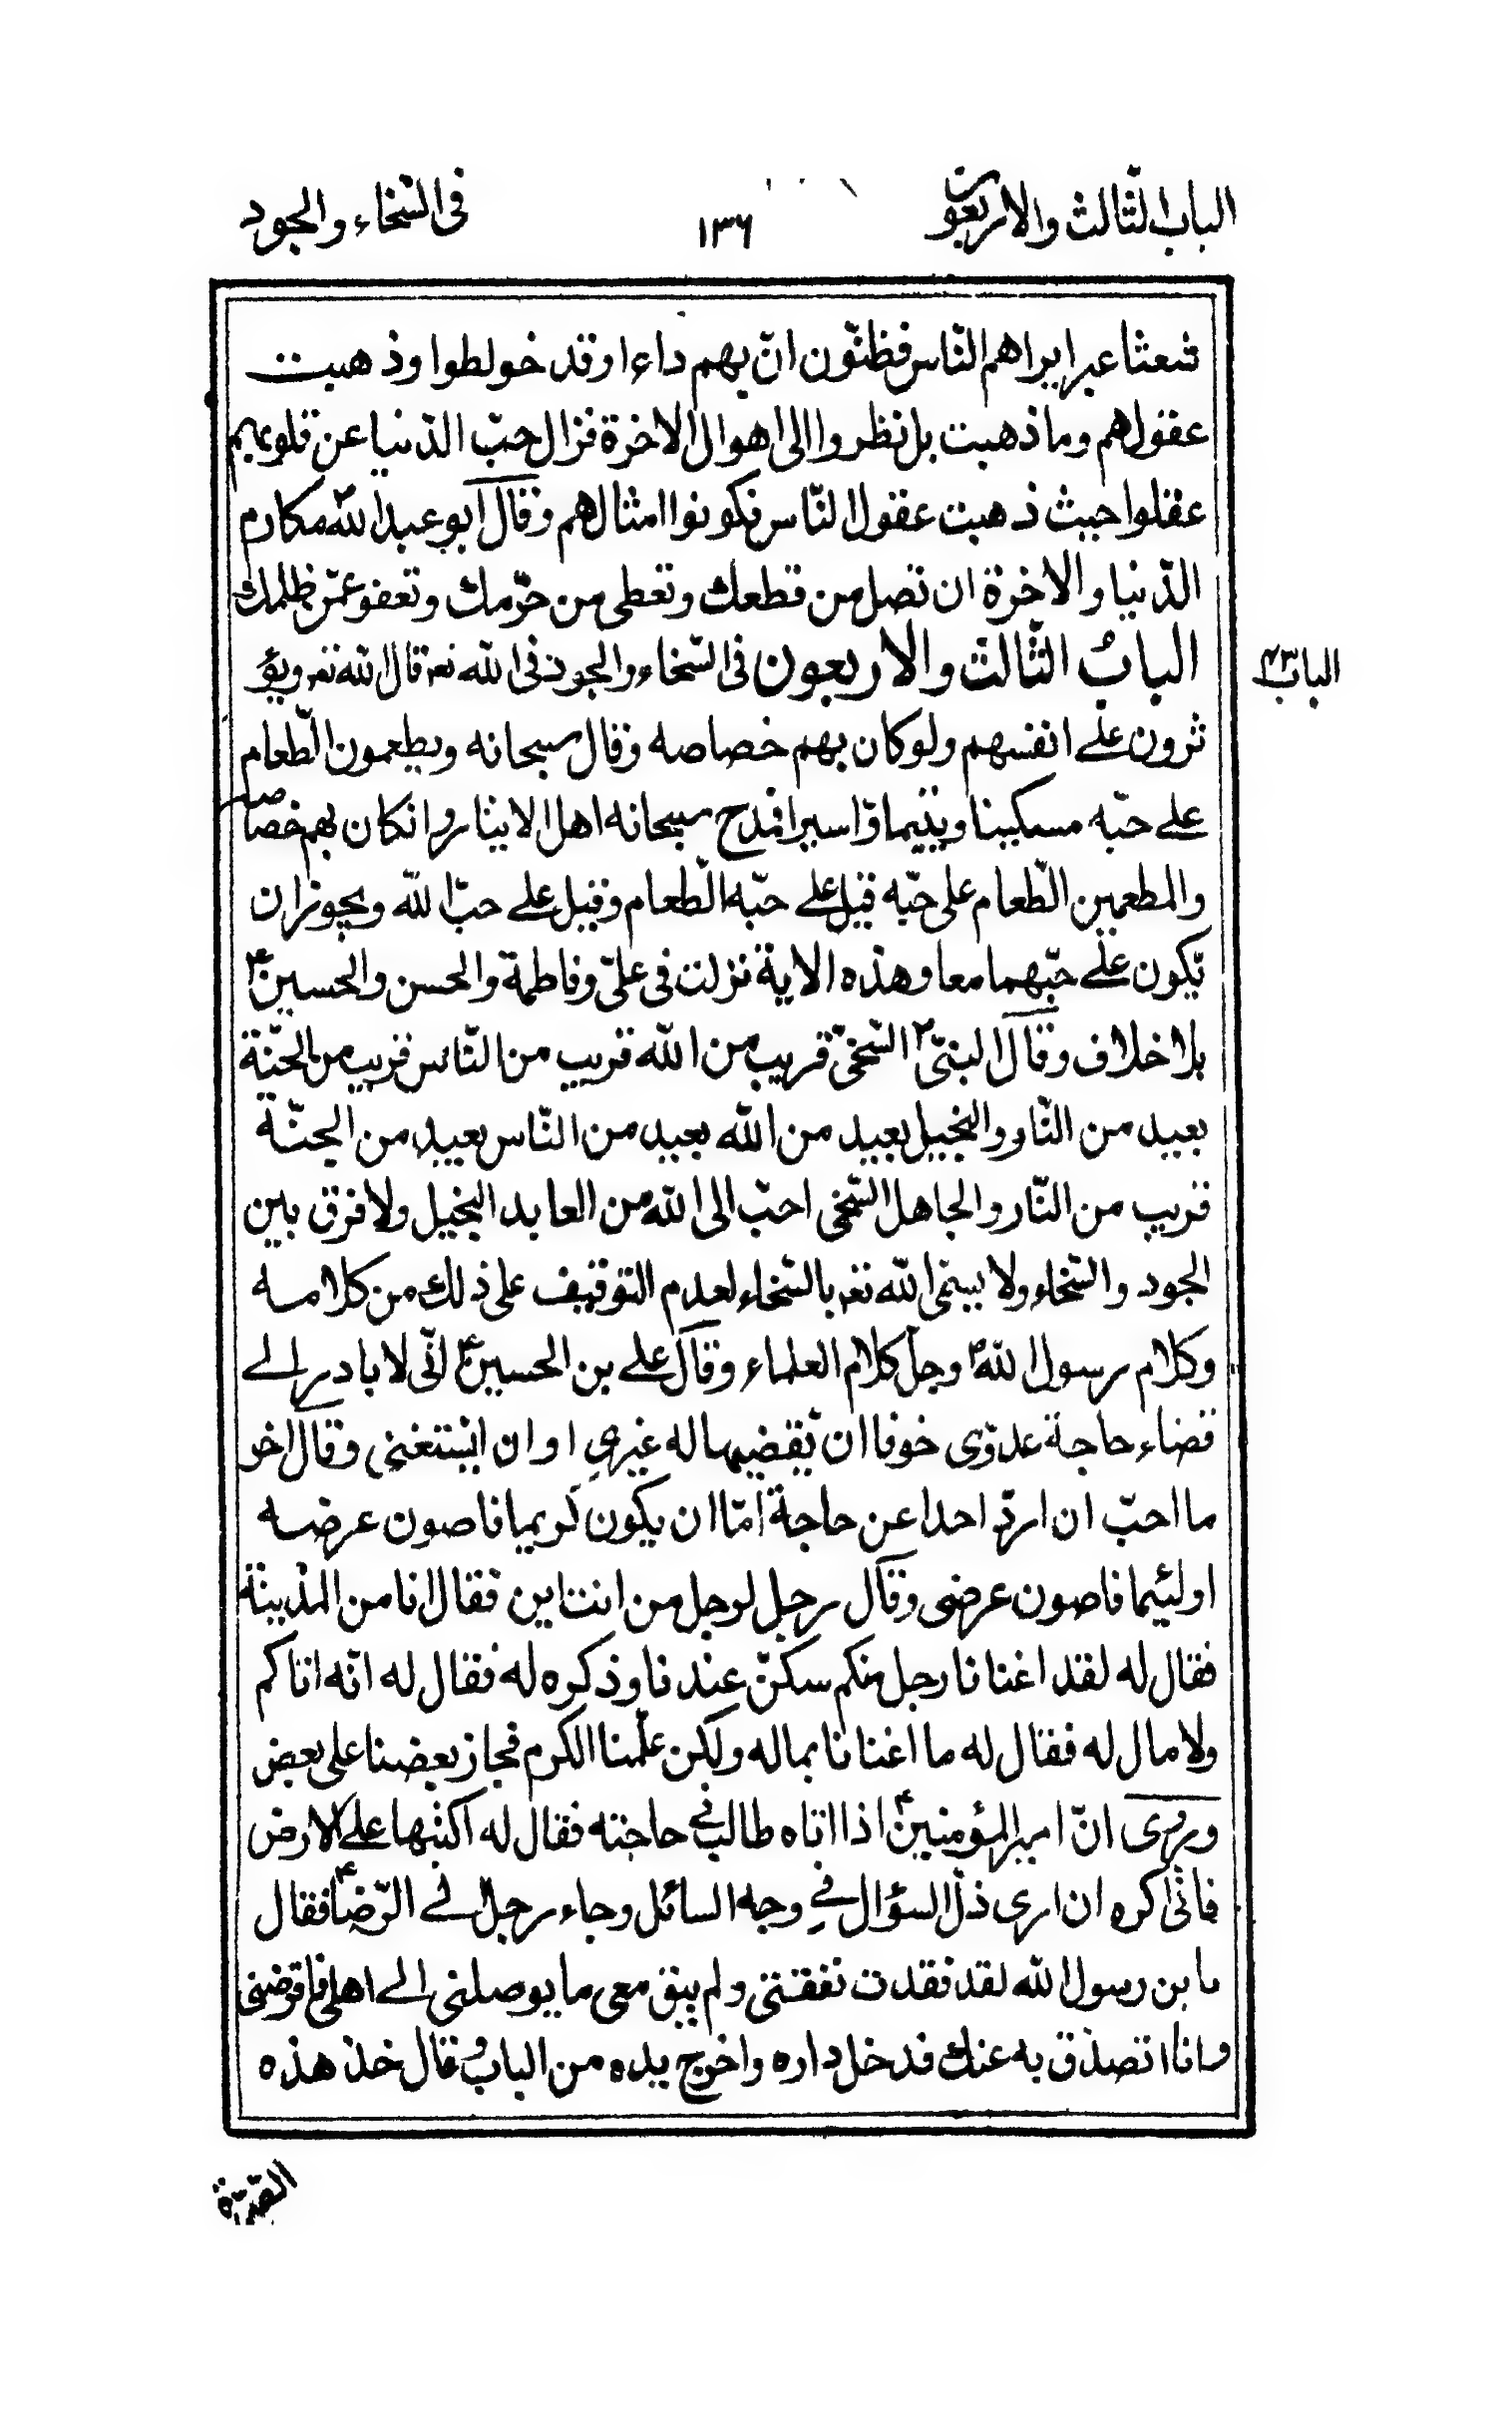 الباب الثالث والاربعون ١٣٦ فى السّخاء والجود
شعثا غبرا يراهم النّاس فظنّون انّ بهم داءا وقد خولطوا وذهبت
عقولهم وما ذهبت بل نظروا الى اهوال الاخرة فزال حبّ الدّنيا عن قلوبهم
عقلوا حيث ذهبت عقول النّاس فكونوا امثالهم وقال ابو عبد الله ع مكارم
الدّنيا والاخرة ان تصل من قطعك وتعطى من حرّمك وتعفو عمّن ظلمك
الباب الثّالث والاربعون فى السّخاء والجود فى الله تعه قال الله تعه ويؤ
الباب ٤٣
ثرون على انفسهم ولو كان بهم خصاصه وقال سبحانه ويطعمون الطّعام
على حبّه مسكينا ويتيما وّاسيرا فمدح سبحانه اهل الايثار وانكان بهم خصاصه
والمطعمين الطّعام على حبّه قيل على حبّه الطّعام وقيل على حبّ الله ويجوز ان
تكون على حبّهما معا وهذه الاية نزلت فى علىّ وفاطمة والحسن والحسين ع
بلا خلاف وقال النبىّ ص السّخىّ قريب من الله قريب من النّاس قريب من الجنّة
بعيد من النّار والبخيل بعيد من الله بعيد من النّاس بعيد من الجنّة
قريب من النّار والجاهل السّخى احبّ الى الله من العابد البخيل ولا فرق بين
الجود والسّخاء ولا يسمّى الله تعه بالسّخاء لعدم التوقيف على ذلك من كلامه
وكلام رسول الله ص وجلّ كلام العلماء وقال على بن الحسين ع انّى لا بادر الى
قضاء حاجة عدوّى خوفا ان يقضيها له غيرى او ان يستغنى وقال اخر
ما احبّ ان اردّ احدا عن حاجة امّا ان يكون كريما فاصون عرضه
او لئيما فاصون عرضى وقال رجل لرجل من انت اين فقال انا من المدينة
فقال له لقد اغنانا رجل منكم سكن عندنا وذكره له فقال له انّه اتاكم
ولا مال له فقال له ما اغنانا بماله ولكن علّمنا الكرم فجاز بعضنا على بعض
وروى انّ امير المؤمنين ع اذا اتاه طالب فى حاجته فقال له اكتبها على الارض
فانّى اكره ان ارى ذلّ السؤال فى وجه السائل وجاء رجل الى الرّضا ع فقال
يابن رسول الله لقد فقدت نفقتى ولم يبق معى ما يوصلنى الى اهلى فاقرضنى
وانا اتصدّق به عنك فدخل داره واخرج يده من الباب وقال خذ هذه
الصّرّة